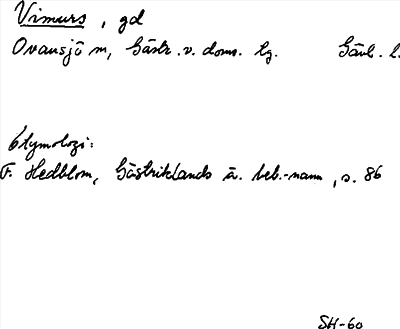 Vimurs, gd
Ovansjö sn, Gästr. v. doms. tg. Gävl. l.
Etymologi:
F. Hedblom, Gästriklands ä. beb.-namn, s. 86
SH-60